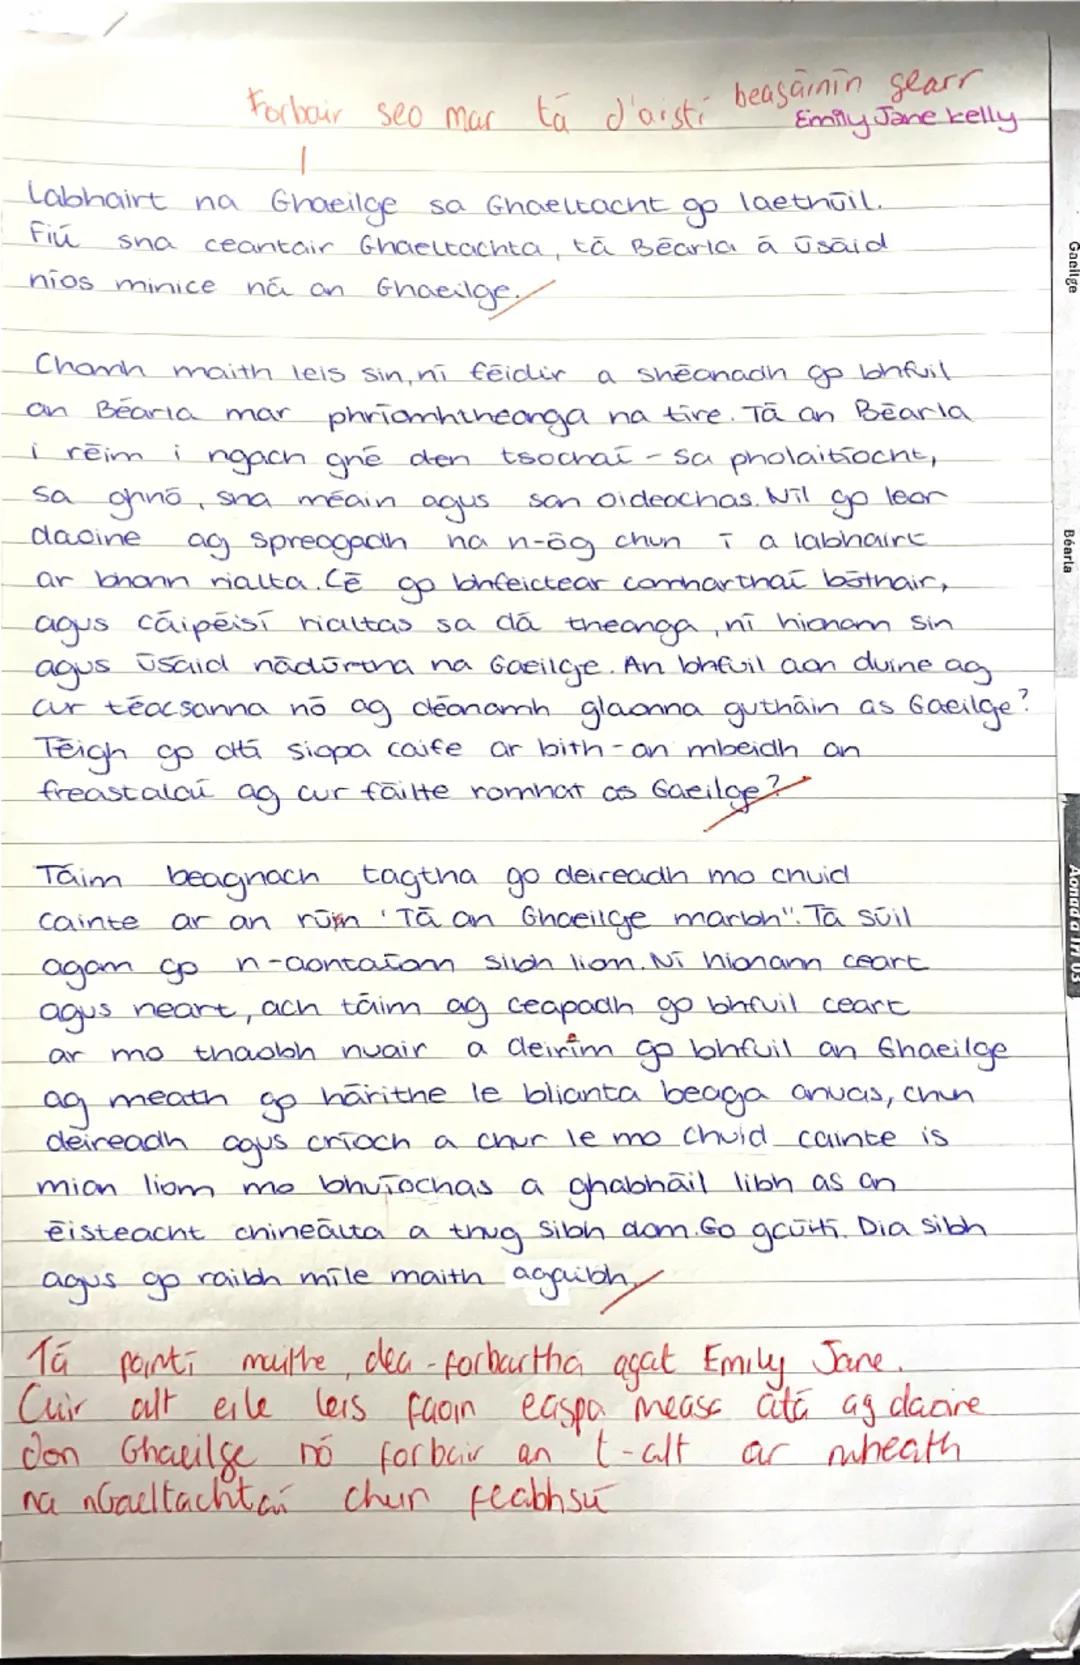 Forbair seo mar tá d'aistí beagáinín gearr
Emily Jane Kelly
Labhairt na Ghaeilge sa Ghaeltacht go laethúil.
Fiú sna ceantair Ghaeltachta, tá Béarla á úsáid
níos minice ná an Ghaeilge.
Chomh maith leis sin, ní féidir a shéanadh go bhfuil
an Béarla mar phríomhtheanga na tíre. Tá an Béarla
i réim i ngach gné den tsochaí - sa pholaitíocht,
sa ghnó, sna méain agus san oideachas. Níl go leor
daoine ag spreagadh na n-óg chun í a labhairt
ar bhonn rialta. Cé go bhfeictear comharthaí bóthair,
agus cáipéisí rialtas sa dá theanga, ní hionann sin
agus úsáid nádúrtha na Gaeilge. An bhfuil aon duine ag
cur téacsanna nó ag déanamh glaonna gutháin as Gaeilge?
Téigh go dtí siopa caife ar bith - an mbeidh an
freastalaí ag cur fáilte romhat as Gaeilge?
Táim beagnach tagtha go deireadh mo chuid
cainte ar an rúin 'Tá an Ghaeilge marbh". Tá súil
agam go n-aontaíonn sibh liom. Ní hionann ceart
agus neart, ach táim ag ceapadh go bhfuil ceart
ar mo thaobh nuair a deirim go bhfuil an Ghaeilge
ag meath go háirithe le blianta beaga anuas, chun
deireadh agus críoch a chur le mo chuid cainte is
mian liom mo bhuíochas a ghabháil libh as an
éisteacht chineálta a thug sibh dom. Go gcúití Dia sibh
agus go raibh míle maith agaibh.
Tá pointí maithe, dea-forbartha agat Emily Jane.
Cuir alt eile leis faoin easpa measc atá ag daoine
don Ghaeilge nó forbair an t-alt ar mheath
na nGaeltachtaí chun feabhsú
Gaeilge
Béarla
Aonad a Trí 03